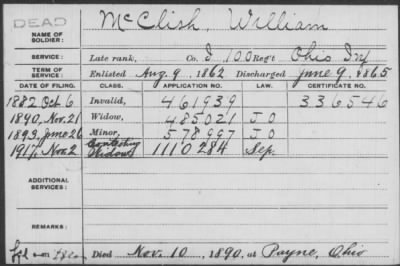 DEAD
NAME OF SOLDIER: McClish, William
SERVICE: Late rank, Co. I 100 Reg't Ohio Inf
TERM OF SERVICE: Enlisted Aug. 9, 1862 Discharged June 9, 1865
DATE OF FILING. CLASS. APPLICATION NO. LAW. CERTIFICATE NO.
1882 Oct 6 Invalid, 461939 336546
1890, Nov. 21 Widow, 485021 J O
1893, June 26 Minor, 578997 J O
1917, Nov. 2 Contesting Widow 1110284 Sep.
ADDITIONAL SERVICES:
REMARKS: Died Nov. 10, 1890, at Payne, Ohio